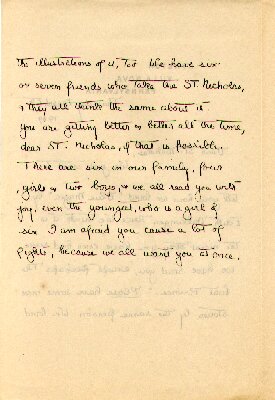 the illustrations of it, too We have six
or seven friends who take the ST. Nicholas,
& they all think the same about it
you are getting better & better all the time,
dear ST. Nicholas, if that is possible.
There are six in our family, four
girls & two boys, & we all read you with
joy, even the youngest, who is a girl of
six I am afraid you cause a lot of
fights, because we all want you at once.